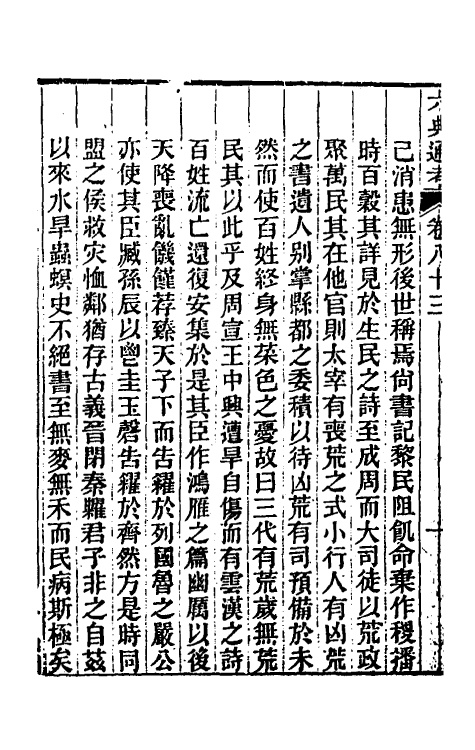 六典通考 卷八十三 十
己消患無形後世稱焉尙書記黎民阻飢命棄作稷播
時百穀其詳見於生民之詩至成周而大司徒以荒政
聚萬民其在他官則太宰有喪荒之式小行人有凶荒
之書遺人別掌縣都之委積以待凶荒有司預備於未
然而使百姓終身無菜色之憂故曰三代有荒歲無荒
民其以此乎及周宣王中興遭旱自傷而有雲漢之詩
百姓流亡還復安集於是其臣作鴻雁之篇幽厲以後
天降喪亂饑饉荐臻天子下而告糴於列國魯之嚴公
亦使其臣臧孫辰以鬯圭玉磬告糴於齊然方是時同
盟之侯救灾恤鄰猶存古義晉閉秦糴君子非之自茲
以來水旱蟲螟史不絕書至無麥無禾而民病斯極矣